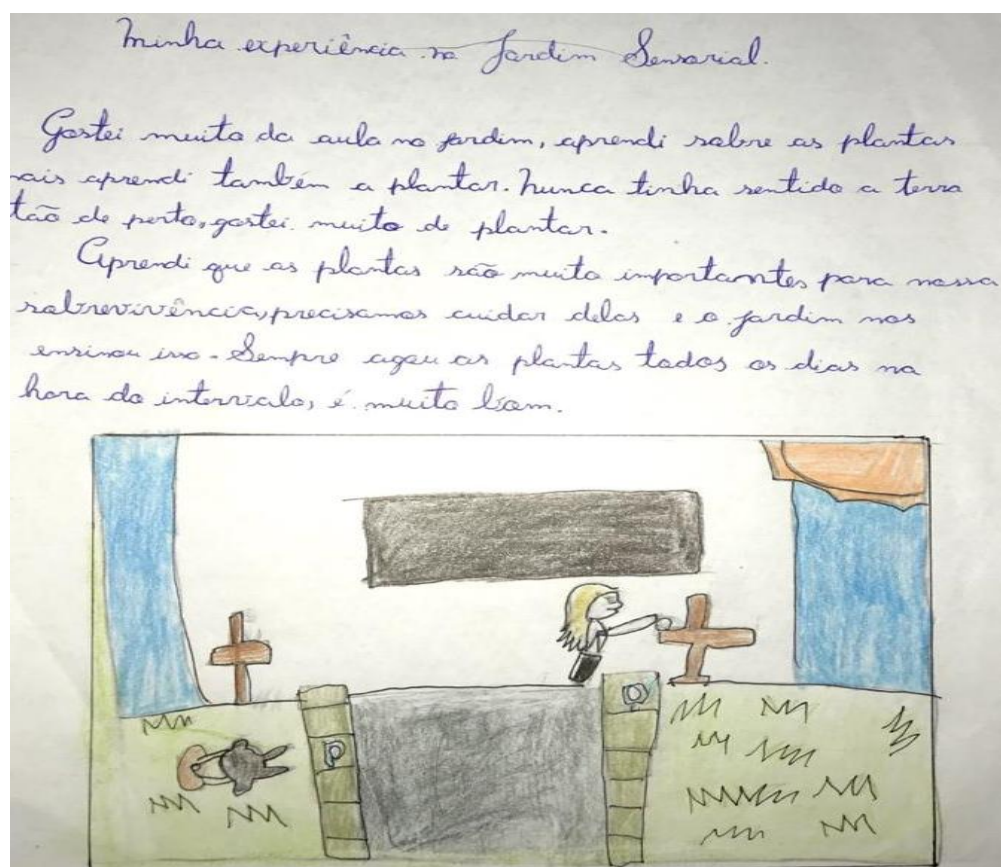 Minha experiência no Jardim Sensorial.
Gostei muito da aula no jardim, aprendi sobre as plantas
mais aprendi também a plantar. Nunca tinha sentido a terra
tão de perto, gostei muito de plantar.
Aprendi que as plantas são muito importantes para nossa
sobrevivência, precisamos cuidar delas e o jardim nos
ensinou isso. Sempre agou as plantas todos os dias na
hora do intervalo, é muito bom.
P